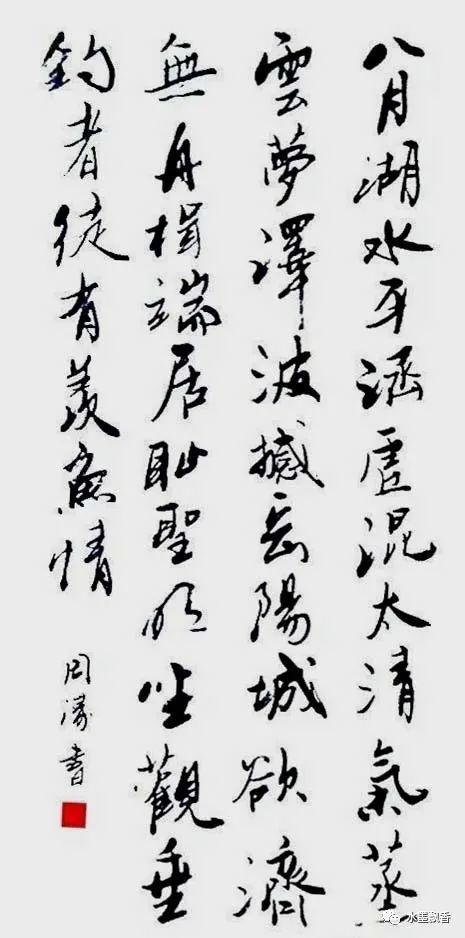 八月湖水平涵虛混太清氣蒸
雲夢澤波撼岳陽城欲濟
無舟楫端居恥聖明坐觀垂
釣者徒有羡魚情
周濤書
水墨飘香